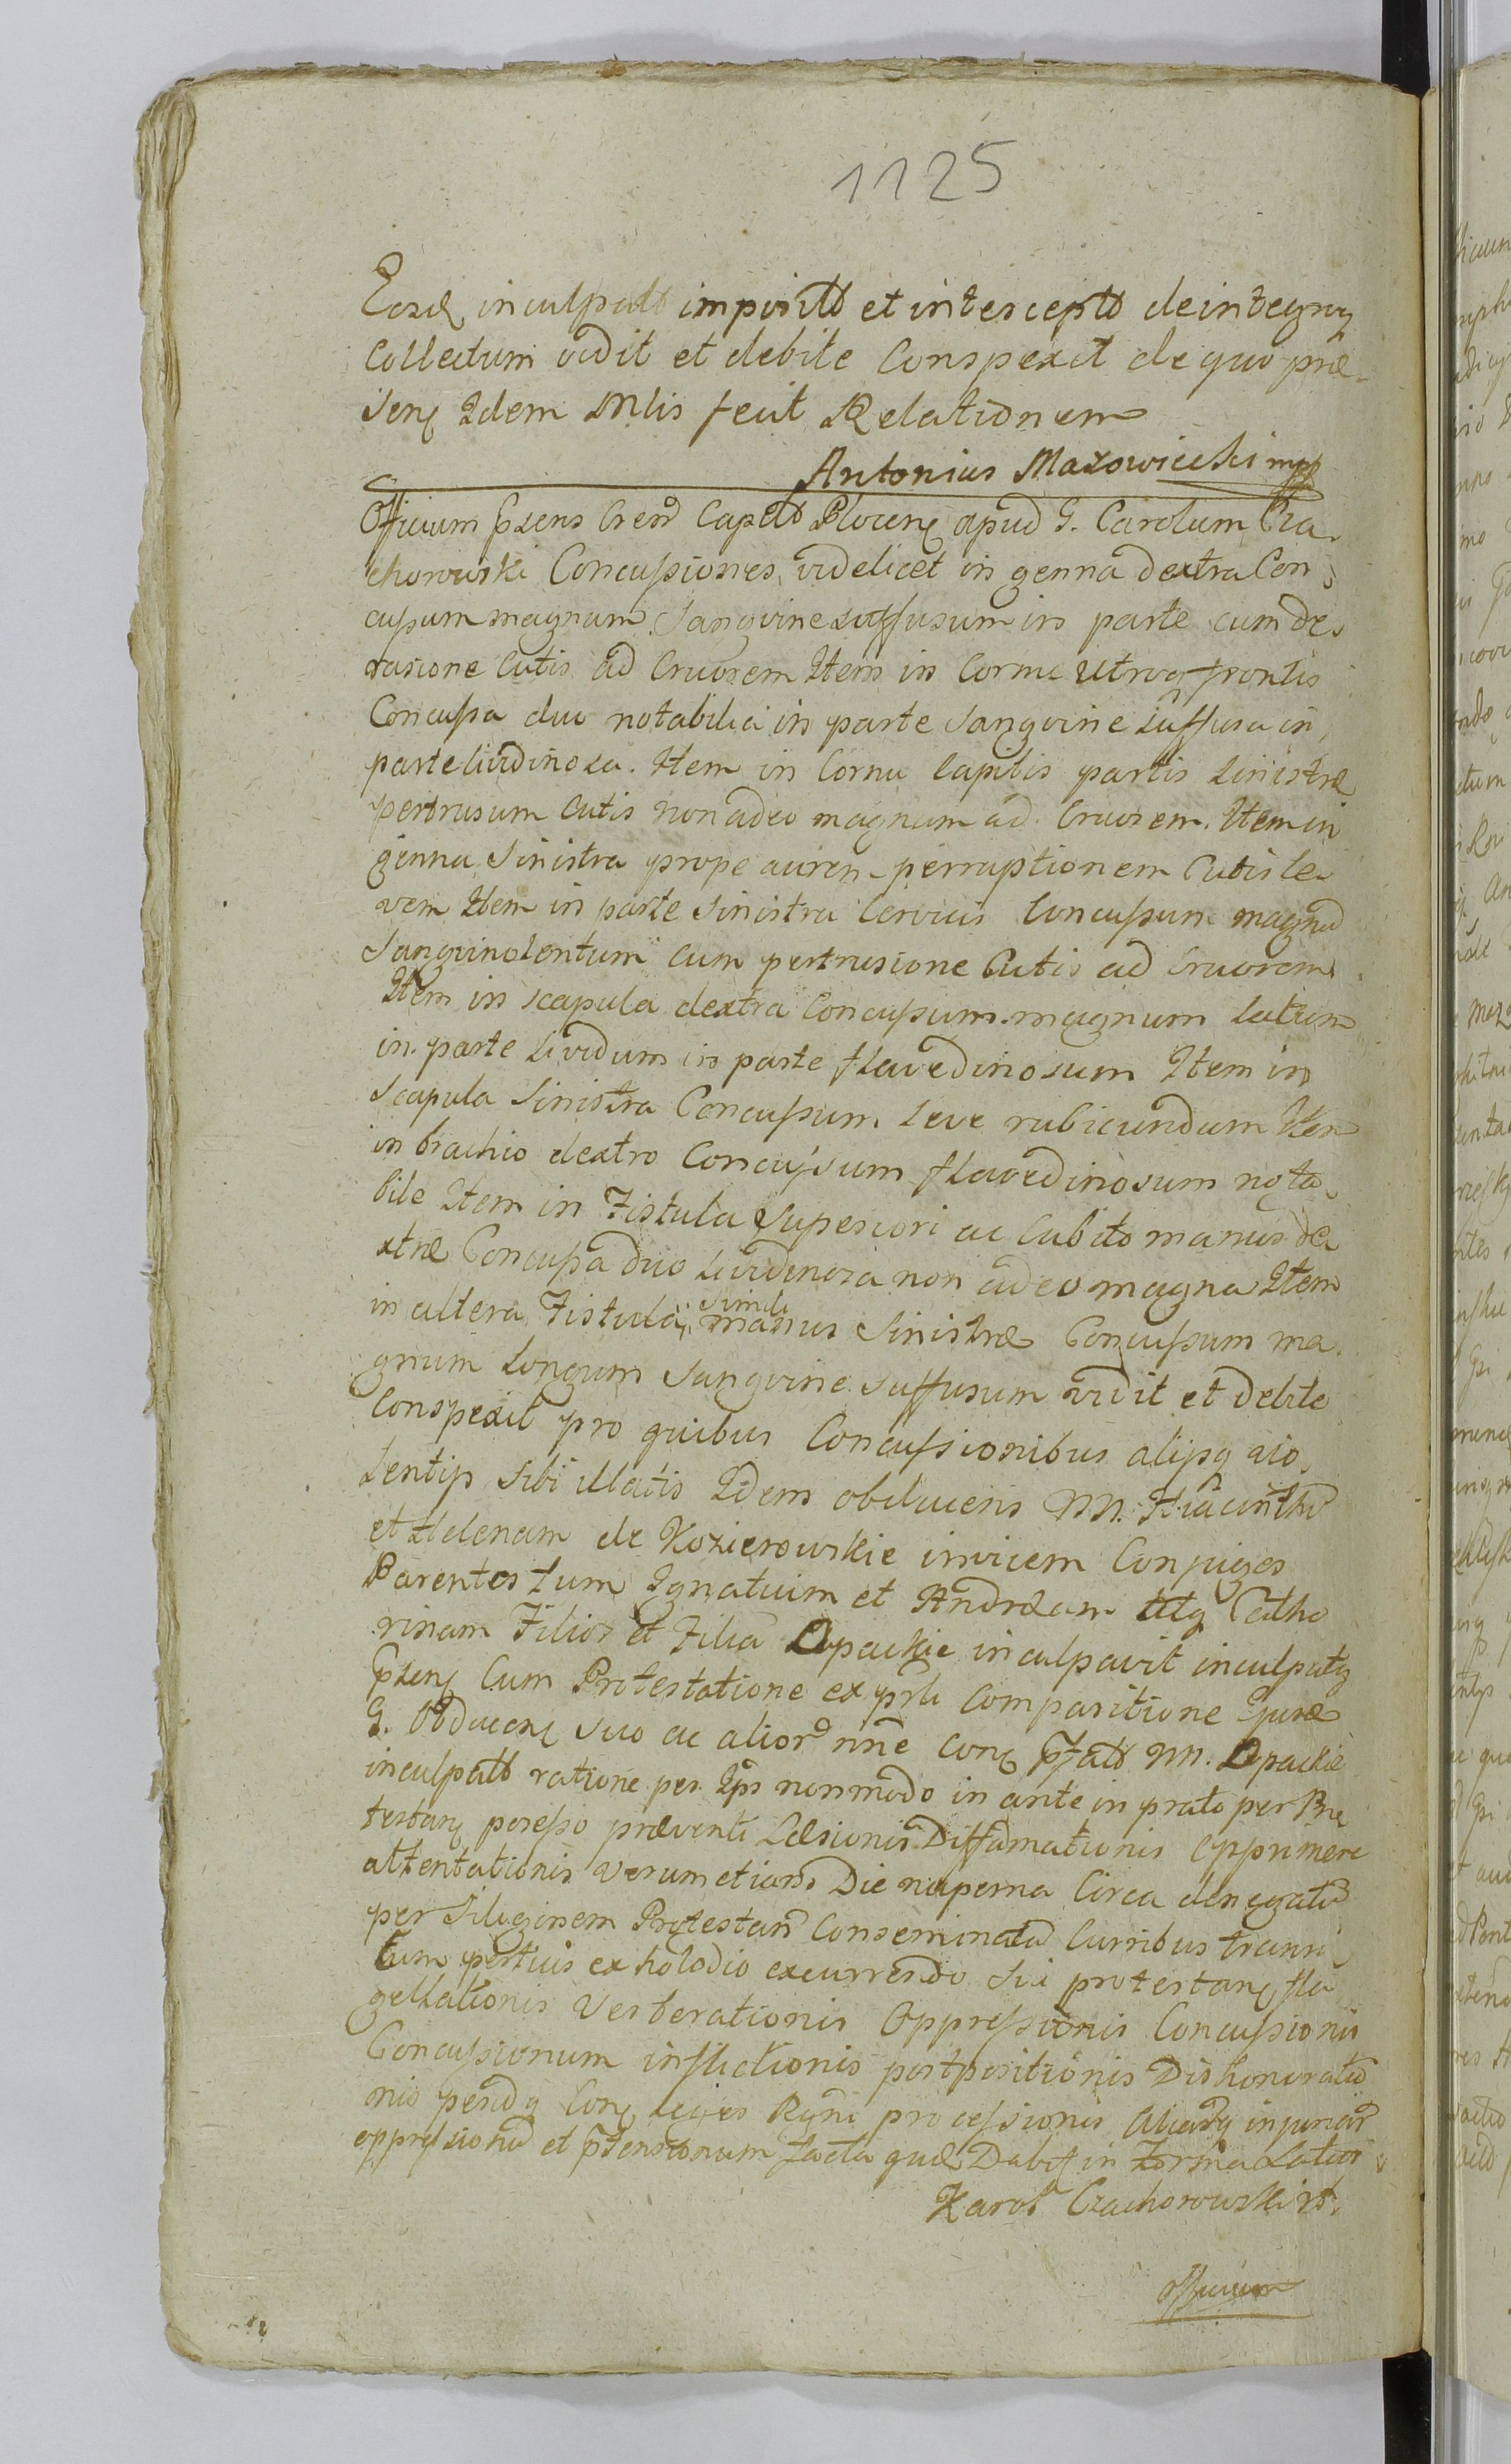 1125
Eosd inculpatt imposittt et intercepttt deintegroq
Collectum vidit et debite Conspexit de quo præ-
senq Idem Mlis fecit Relationem
Antonius Mazowiecki mpp
Officium Pzens Crend Capeltt Plocenq apud G. Carolum Cza-
chorowski Concussiones videlicet in genna dextra Con-
cussum magnum Sangvine suffusum in parte cum de-
rasione Cutis ad Cruorem Item in Cornu utroq frontis
Concussa duo notabilia in parte Sangvine suffusa in
parte lividinosa. Item in Cornu Capitis partis Sinistræ
pertrusum Cutis non adeo magnum ad Cruorem. Item in
genna Sinistra prope aurem perruptionem Cutis le-
vem Item in parte Sinistra Cervicis Concussum magnū
Sangvinolentum cum pertrusione Cutis ad Cruorem
Item in scapula dextra Concussum magnum latum
in parte lividum in parte flavedinosum Item in
Scapula Sinistra Concussum leve rubicundum Item
in brachio dextro Concussum flavedinosum nota-
bile Item in Fistula Superiori ac Cubito manus de-
xtræ Concussa duo lividinosa non adeo magna Item
in altera Fistula simili manus Sinistræ Concussum ma-
gnum longum Sangvine suffusum vidit et debite
Conspexit pro quibus Concussionibus alijsq vio-
lentijs sibi illatis Idem obducens MM. Hiacinthū
et Helenam de Kozierowskie invicem Conjuges
Parentes tum Ignatium et Andream utq Catha-
rinam Filios et Filiā Opackie inculpavit inculpatq
Pzenq Cum Protestatione ex prsli Comparitione Ejusd
G. Obducenq suo ac alior nne Conq Pfatt MM. Opackie
inculpatt ratione per Ips non modo in ante in prato per
testanq possesso præventi Læsionis Diffamationis Opprimere
attentationis Verum etiam Die nuperna Circa denegatū
per Siliginem Protestan Conseminatā Curribus transi-
tum perticis ex holodio excurrendo Sui protestanq fla-
gellationis Verberationis Oppressionis Concussionis
Concussionum inflictionis postpositionis Dishonoratio-
nis pendq Conq leges Regni processionis aliarq injuriar
oppressionū et Ptensionum facta quæ Dabit in Forma Latiori
Karol Czachorowski
Officium